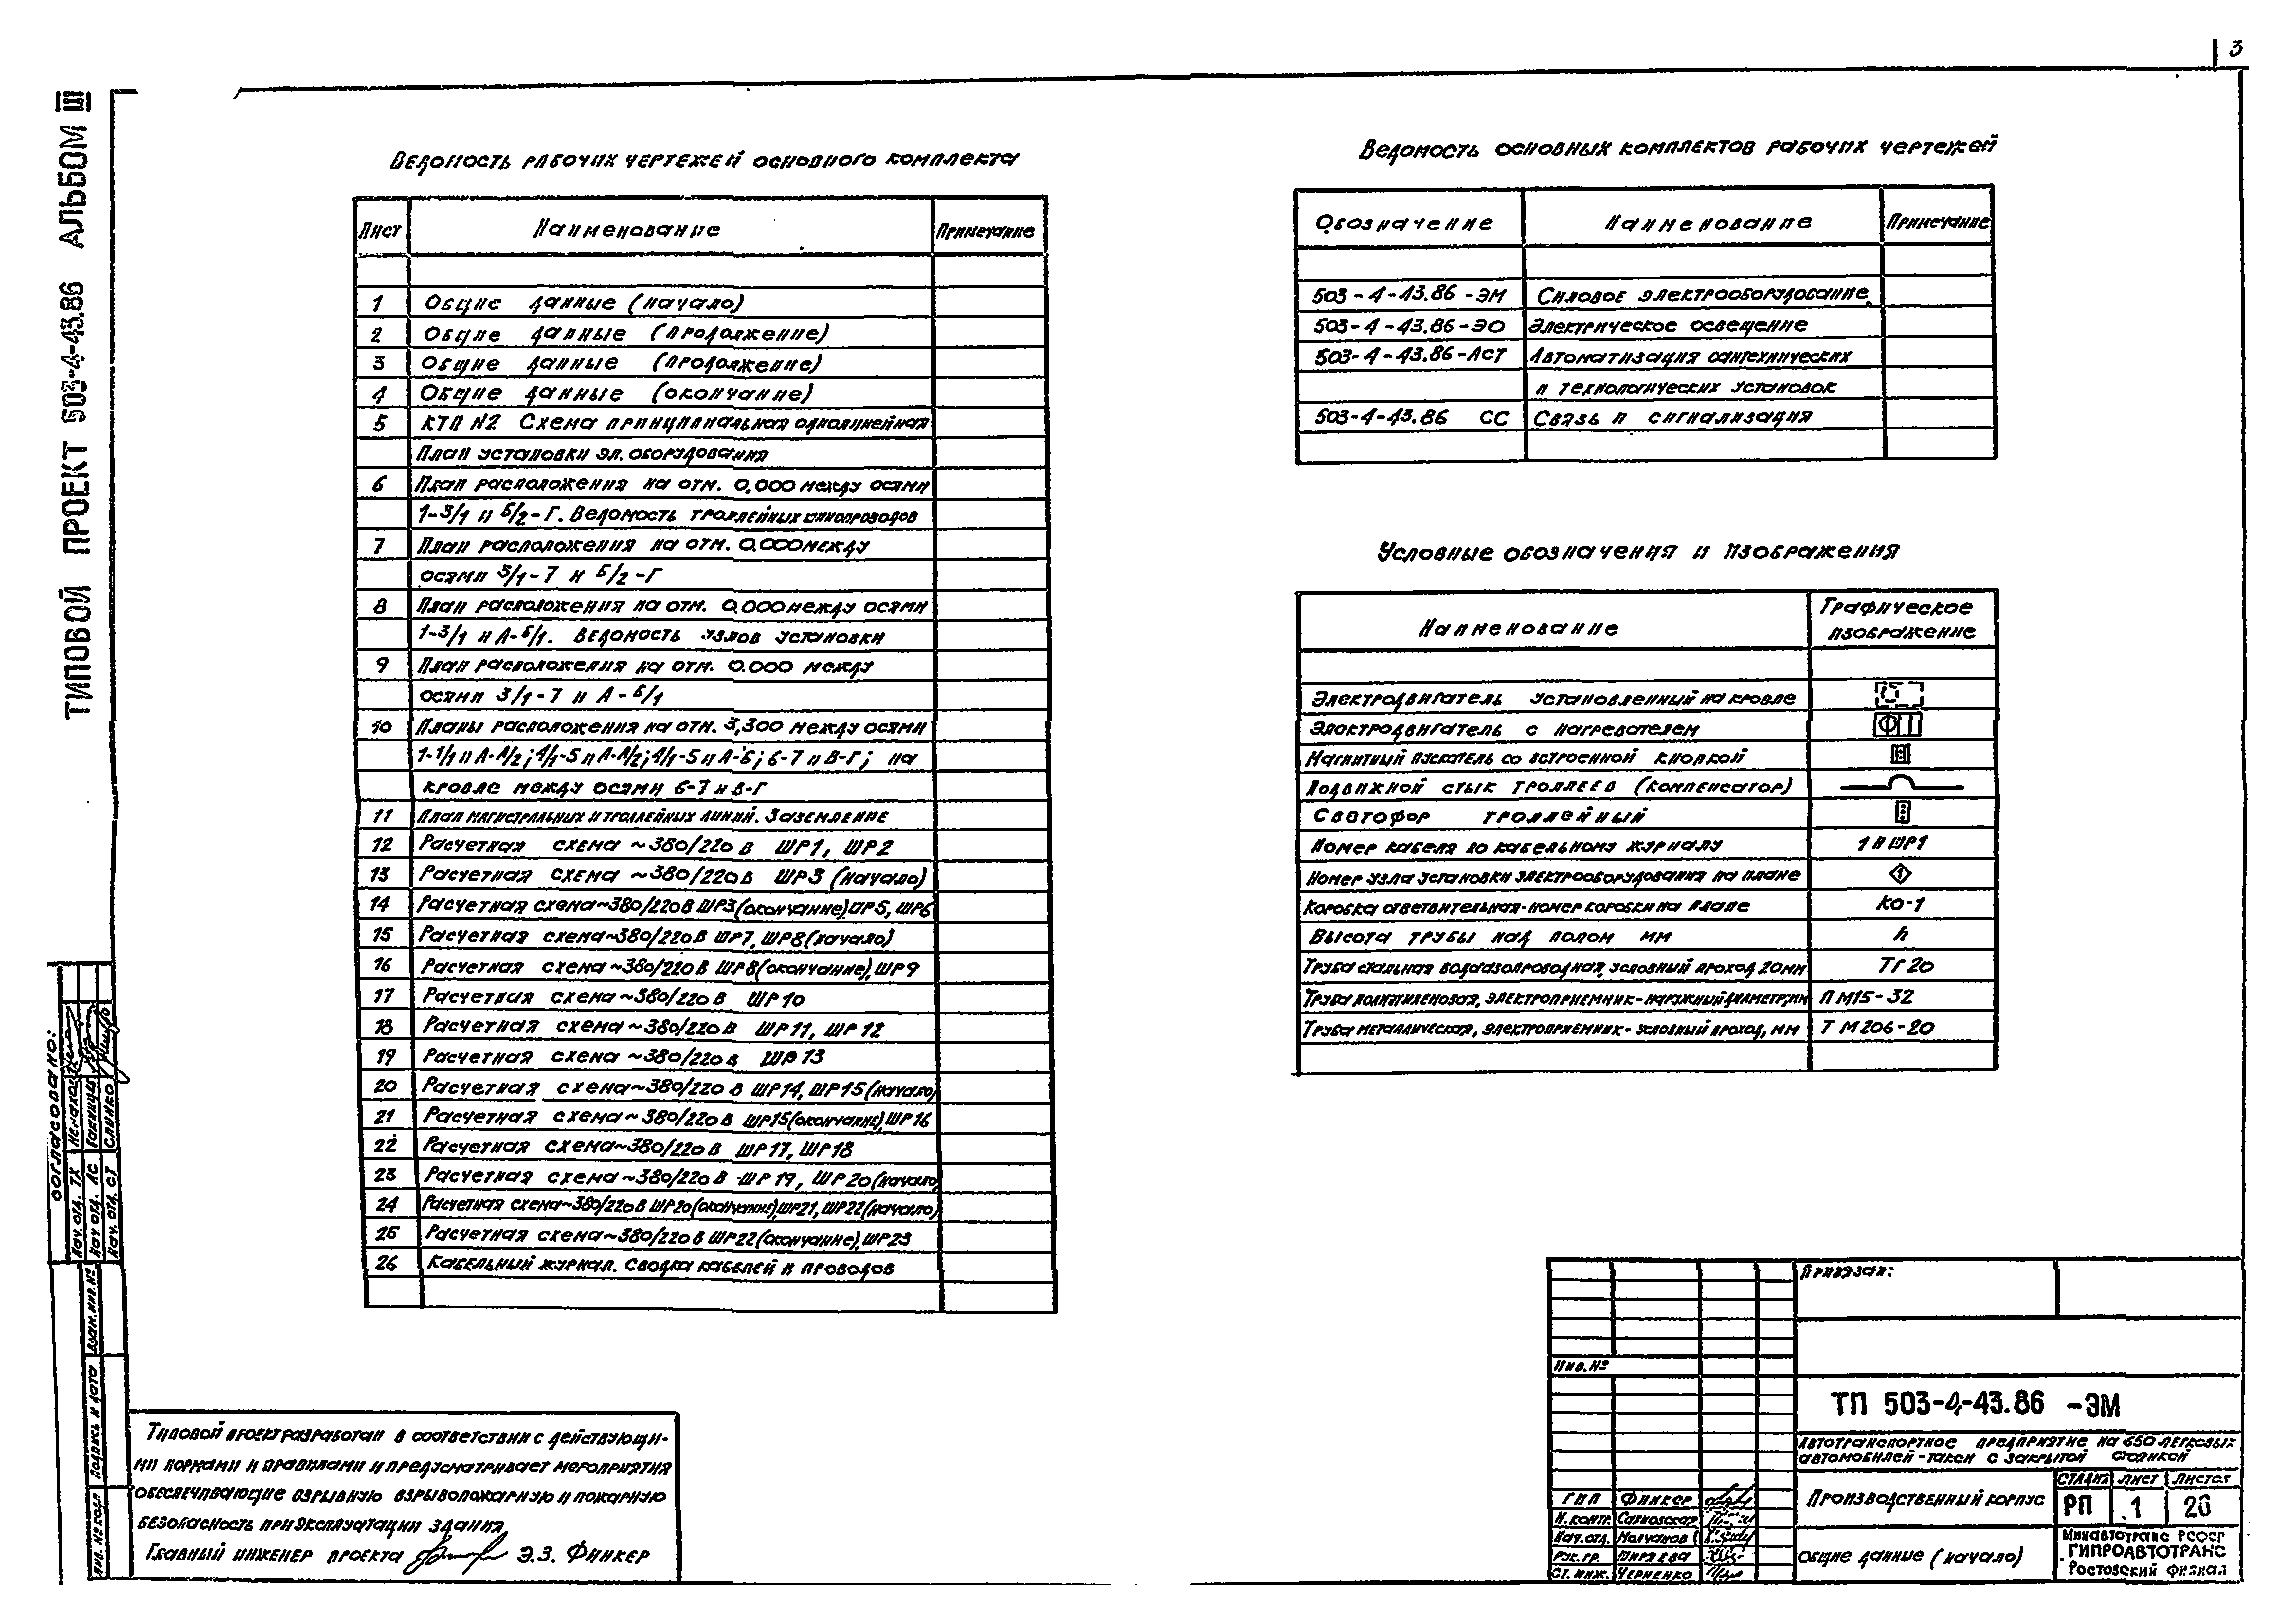 3
ТИПОВОЙ ПРОЕКТ 503-4-43.86 АЛЬБОМ III
Ведомость рабочих чертежей основного комплекта
Лист Наименование Примечание
1 Общие данные (начало)
2 Общие данные (продолжение)
3 Общие данные (продолжение)
4 Общие данные (окончание)
5 КТП N2 Схема принципиальная однолинейная
План установки эл. оборудования
6 План расположения на отм. 0,000 между осями
1-3/1 и Б/2-Г. Ведомость троллейных шинопроводов
7 План расположения на отм. 0.000 между
осями 3/1-7 и Б/2-Г
8 План расположения на отм. 0.000 между осями
1-3/1 и А-Б/1. Ведомость узлов установки
9 План расположения на отм. 0.000 между
осями 3/1-7 и А-Б/1
10 Планы расположения на отм. 3,300 между осями
1-1/1 и А-А/2; 4/1-5 и А-А/2; 4/1-5 и А-Б; 6-7 и В-Г; на
кровле между осями 6-7 и В-Г
11 План магистральных и троллейных линий. Заземление
12 Расчетная схема ~380/220 в ШР1, ШР2
13 Расчетная схема ~380/220 в ШР3 (начало)
14 Расчетная схема ~380/220 в ШР3 (окончание) ПР5, ШР6
15 Расчетная схема ~380/220 в ШР7, ШР8 (начало)
16 Расчетная схема ~380/220 в ШР8 (окончание), ШР9
17 Расчетная схема ~380/220 в ШР10
18 Расчетная схема ~380/220 в ШР11, ШР12
19 Расчетная схема ~380/220 в ШР13
20 Расчетная схема ~380/220 в ШР14, ШР15 (начало)
21 Расчетная схема ~380/220 в ШР15 (окончание), ШР16
22 Расчетная схема ~380/220 в ШР17, ШР18
23 Расчетная схема ~380/220 в ШР19, ШР20 (начало)
24 Расчетная схема ~380/220 в ШР20 (окончание), ШР21, ШР22 (начало)
25 Расчетная схема ~380/220 в ШР22 (окончание), ШР23
26 Кабельный журнал. Сводка кабелей и проводов
Ведомость основных комплектов рабочих чертежей
Обозначение Наименование Примечание
503-4-43.86-ЭМ Силовое электрооборудование
503-4-43.86-ЭО Электрическое освещение
503-4-43.86-АСТ Автоматизация сантехнических
и технологических установок
503-4-43.86 СС Связь и сигнализация
Условные обозначения и изображения
Наименование Графическое
изображение
Электродвигатель установленный на кровле
Электродвигатель с нагревателем
Магнитный пускатель со встроенной кнопкой
Подвижной стык троллеев (компенсатор)
Светофор троллейный
Номер кабеля по кабельному журналу 1 П ШР1
Номер узла установки электрооборудования на плане 1
Коробка ответвительная-номер коробки на плане КО-1
Высота трубы над полом мм h
Труба стальная водогазопроводная, условный проход 20мм Тг 20
Труба полиэтиленовая, электроприемник-наружный диаметр, мм П М15-32
Труба металлическая, электроприемник-условный проход, мм Т М206-20
согласовано:
Нач. отд. ТХ
Нач. отд. АС
Нач. отд. СТ Слинко
Взам. инв. №
Подпись и дата
Инв. № подл.
Типовой проект разработан в соответствии с действующи-
ми нормами и правилами и предусматривает мероприятия
обеспечивающие взрывную взрывопожарную и пожарную
безопасность при эксплуатации здания
Главный инженер проекта Э.З. Финкер
Привязан:
Инв. №
ТП 503-4-43.86 -ЭМ
Автотранспортное предприятие на 650 легковых
автомобилей-такси с закрытой стоянкой
ГИП Финкер
Н. контр. Салковская
Нач. отд. Молчанов
Рук. гр. Ширяева
Ст. инж. Черненко
Производственный корпус
Стадия Лист Листов
РП 1 26
Общие данные (начало)
Минавтотранс РСФСР
ГИПРОАВТОТРАНС
Ростовский филиал